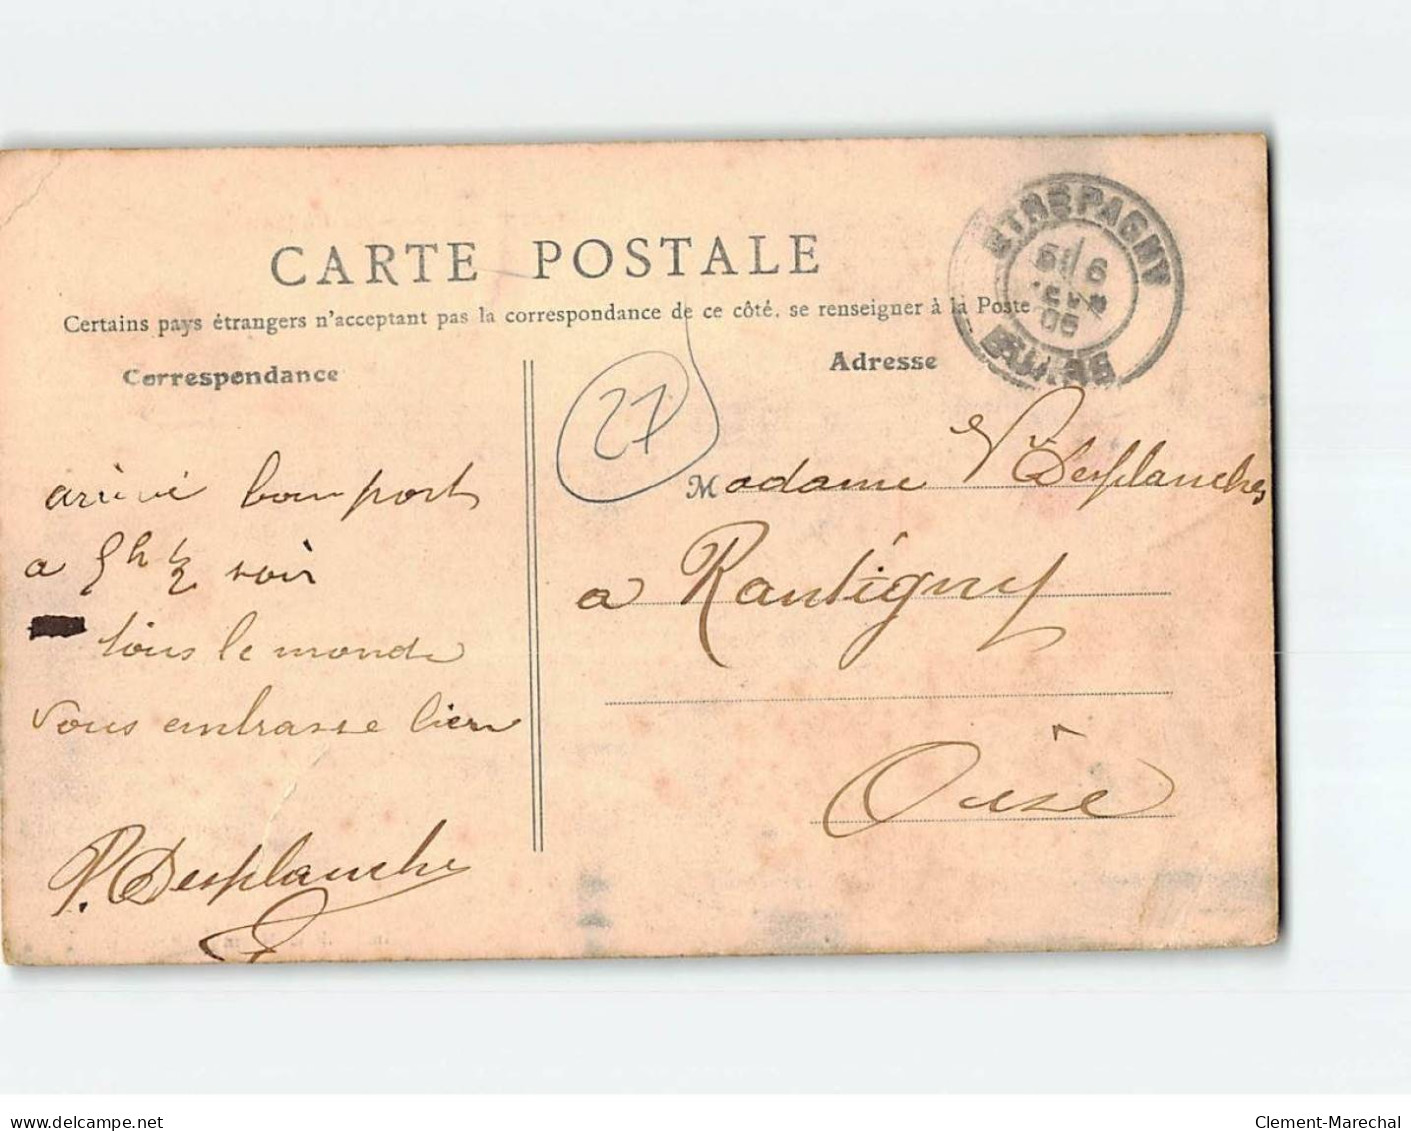 CARTE POSTALE
Certains pays étrangers n'acceptant pas la correspondance de ce côté. se renseigner à la Poste
Correspondance
Adresse
ETREPAGNY
6
06
EURE
27
arrivé bon port
a 5h ½ soir
tous le monde
vous embrasse bien
P. Desplanche
Madame Vve Desplanches
a Rantigny
Oise
www.delcampe.net
Clement-Marechal